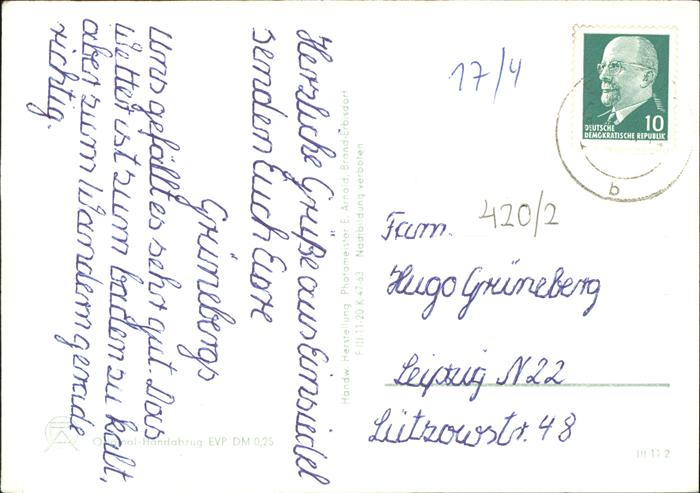 Herzliche Grüße aus Einsiedel
senden Euch Eure
Grünebergs
Uns gefällt es sehr gut. Das
Wetter ist zum baden zu kalt,
aber zum Wandern gerade
richtig.
Original-Handabzug EVP DM 0,25
Handw. Herstellung Photomeister E. Arnold, Brand-Erbisdorf
F III-11-20 K 47-63 Nachbildung verboten
17/4
DEUTSCHE
DEMOKRATISCHE REPUBLIK
10
b
420/2
Fam.
Hugo Grüneberg
Leipzig N 22
Lützowstr. 48
III 11 2